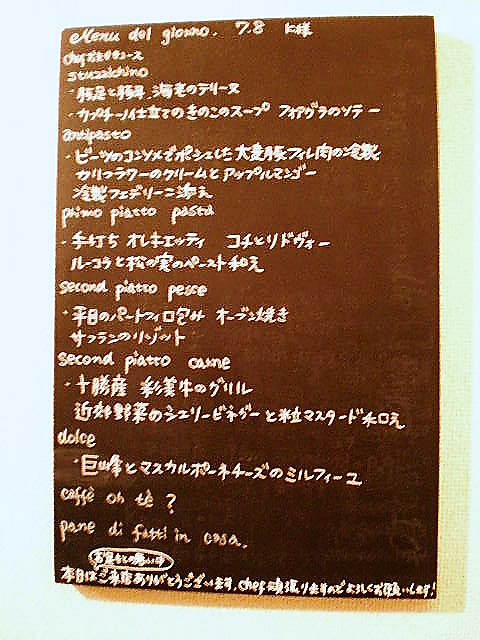 Menu del giorno. 7.8 K様
chefおまかせコース
stuzzichino
・豚足と豚鼻 海老のテリーヌ
・カプチーノ仕立てのきのこのスープ フォアグラのソテー
antipasto
・ビーツのコンソメでポシェした大麦豚フィレ肉の冷製
カリフラワーのクリームとアップルマンゴー
冷製フェデリーニ添え
primo piatto pasta
・手打ち オレキエッティ コチとリドヴォー
ルーコラと松の実のペースト和え
second piatto pesce
・平目のパートフィロ包み オーブン焼き
サフランのリゾット
second piatto carne
・十勝産 彩美牛のグリル
近郊野菜のシェリービネガーと粒マスタード和え
dolce
・巨峰とマスカルポーネチーズのミルフィーユ
caffè oh tè ?
pane di fatti in casa.
本日はご来店ありがとうございます。chef頑張りますのでよろしくお願いします!